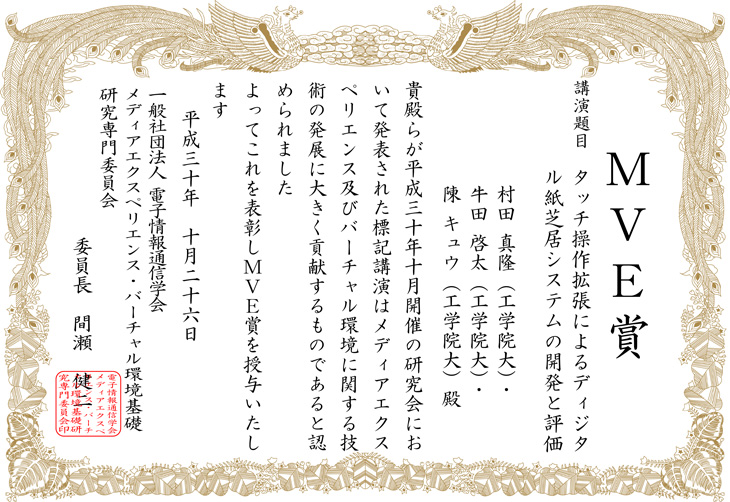 MVE賞
講演題目 タッチ操作拡張によるディジタ
ル紙芝居システムの開発と評価
村田 真隆（工学院大）・
牛田 啓太（工学院大）・
陳 キュウ（工学院大）殿
貴殿らが平成三十年十月開催の研究会にお
いて発表された標記講演はメディアエクス
ペリエンス及びバーチャル環境に関する技
術の発展に大きく貢献するものであると認
められました
よってこれを表彰しMVE賞を授与いたし
ます
平成三十年 十月二十六日
一般社団法人 電子情報通信学会
メディアエクスペリエンス・バーチャル環境基礎
研究専門委員会
委員長 間瀬 健二
電子情報通信学会
メディアエクスペ
リエンス・バーチ
ャル環境基礎研
究専門委員会印